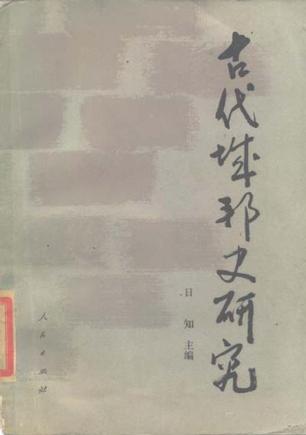 古代城邦史研究
日知 主编
人民出版社